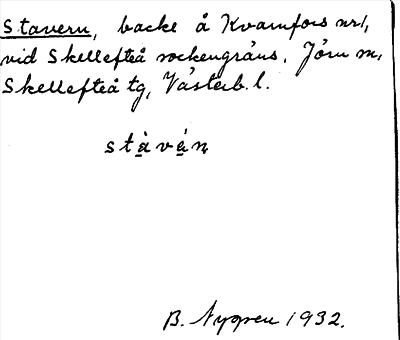 Stavern, backe å Kvarnfors nr 1,
vid Skellefteå sockengräns. Jörn sn,
Skellefteå tg, Västerb. l.
stàván
B. Nygren 1932.